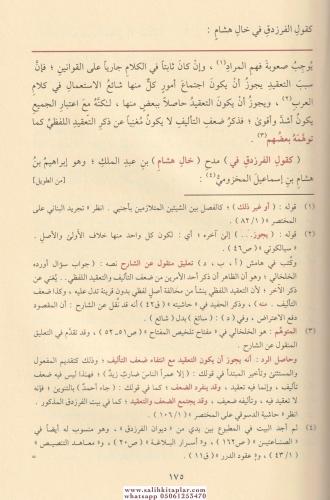 كقولِ الفرزدقِ في خالِ هشامٍ :
يُوجِبُ صعوبةَ فهمِ المرادِ(١) ، وإنْ كانَ ثابتاً في الكلامِ جارياً على القوانينِ ؛ فإنَّ
سببَ التعقيدِ يجوزُ أنْ يكونَ اجتماعَ أمورٍ كلٌّ منها شائعُ الاستعمالِ في كلامِ
العربِ(٢) ، ويجوزُ أنْ يكونَ التعقيدُ حاصلاً ببعضٍ منها ، لكنَّهُ معَ اعتبارِ الجميعِ
يكونُ أشدَّ وأقوىٰ ؛ فذكرُ ضعفِ التأليفِ لا يكونُ مُغنِياً عن ذكرِ التعقيدِ اللفظيِّ كما
توهَّمَهُ بعضُهم(٣) .
( كقولِ الفرزدقِ في ) مدحِ ( خالِ هشامٍ ) بنِ عبدِ الملكِ ؛ وهو إبراهيمُ بنُ
هشامِ بنِ إسماعيلَ المخزوميُّ(٤) : [من الطويل]
(١) قوله : ( أو غير ذلك ) ؛ كالفصل بين الشيئين المتلازمين بأجنبي . انظر « تجريد البناني على
المختصر » ( ٨٢/١ ) .
(٢) قوله : ( يجوز . . . ) إلى آخره ؛ أي : لكون كل واحد منها خلاف الأولىٰ والأصل .
« سيالكوتي » ( ص٤٦ ) .
وكتب في هامش ( أ ، ب ، د ) تعليق منقول عن الشارح نصه : ( جواب سؤال أورده
الخلخالي ؛ وهو أن الظاهر أن ذكر أحد الأمرين من ضعف التأليف والتعقيد اللفظي . . يُغني عن
ذكر الآخر ؛ لأن التعقيد اللفظي ينشأ من مخالفة أصل لفظي بدون قرينة تدل عليه ، وكذا ضعف
التأليف . منه ) ، وذكر الحفيد في « حاشيته » ( ق٤٢ ) أنه قد نُقل عن الشارح : أن المقصود
دفع الاعتراض ، وفي ( د ) : ( سائغ ) بدل ( شائع ) .
(٣) المتوهِّم : هو الخلخالي في « مفتاح تلخيص المفتاح » ( ص٥١ـ٥٢ ) ، وقد تقدَّم في التعليق
المنقول عن الشارح .
وحاصل الرد : أنه يجوز أن يكون التعقيد مع انتفاء ضعف التأليف ؛ وذلك كتقديم المفعول
والمستثنى وتأخير المبتدأ في قولك : ( إلا عمراً الناسَ ضاربٌ زيدٌ ) ؛ فهذا ليس فيه ضعف
تأليف ، وإنما فيه تعقيد ، وقد ينفرد الضعف ؛ كما في قولك : ( جاء أحمدٌ ) بالتنوين ؛ فإنه
لا تعقيد فيه ، وتأليفه ضعيف ، وقد يجتمع الضعف والتعقيد ؛ كما في بيت الفرزدق المذكور .
انظر « حاشية الدسوقي على المختصر » ( ١٠٦/١ ) .
(٤) لم أجد البيت في المطبوع بين يدي من « ديوان الفرزدق » ، وهو منسوب له أيضاً في
« الصناعتين » ( ص١٦٢ ) ، و« أسرار البلاغة » ( ص٢٠ ) ، و« معاهد التنصيص »
( ٤٣/١ ) ، و« عقود الدرر » ( ق١١ ) . =
١٧٥
www.salihkitaplar.com
whatsapp 05061253470